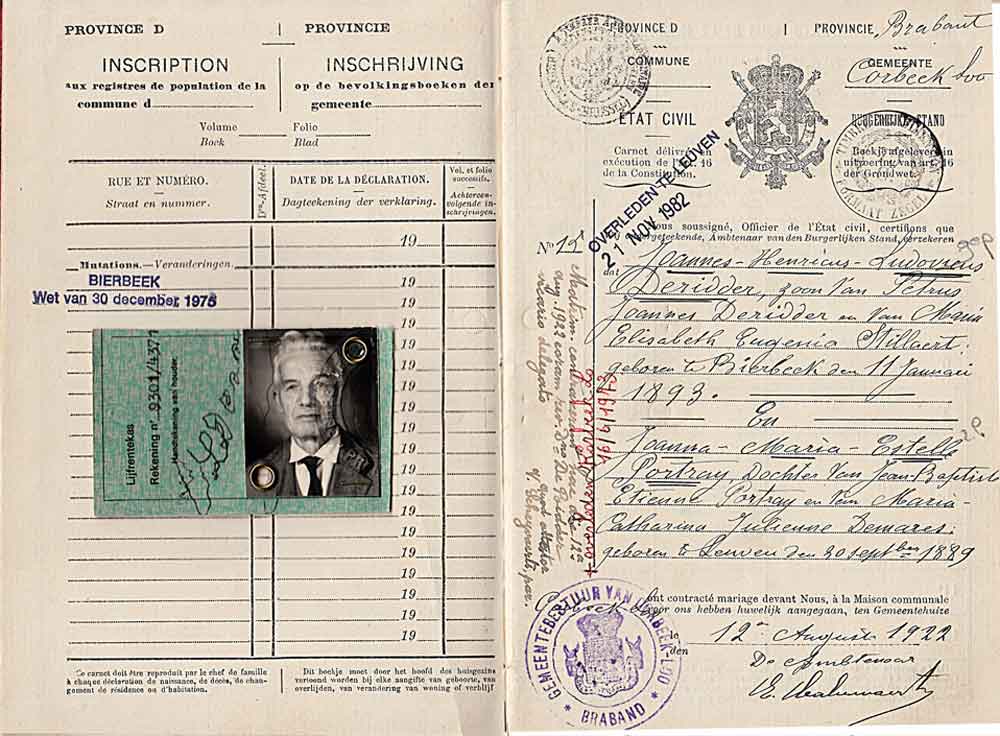 PROVINCE D
PROVINCIE
INSCRIPTION
INSCHRIJVING
aux registres de population de la
op de bevolkingsboeken der
commune d
gemeente
Volume
Folio
Boek
Blad
RUE ET NUMÉRO.
Straat en nummer.
Dte-Afdeel.
DATE DE LA DÉCLARATION.
Dagteekening der verklaring.
Vol. et folio
successifs.
Achtereen-
volgende in-
schrijvingen.
19
Mutations.—Veranderingen.
19
BIERBEEK
Wet van 30 december 1975
19
19
19
19
19
19
19
19
19
19
19
19
19
19
Lijfrentekas
Rekening nº 9301/437
Handteekening van houder.
Ce carnet doit être reproduit par le chef de famille
à chaque déclaration de naissance, de décès, de chan-
gement de résidence ou d'habitation.
Dit boekje moet door het hoofd des huisgezins
vertoond worden bij elke aangifte van geboorte, van
overlijden, van verandering van woning of verblijf
PROVINCE D
PROVINCIE Brabant
COMMUNE
GEMEENTE
Corbeek Loo
ÉTAT CIVIL
BURGERLIJKE STAND
Carnet délivré
exécution de l'art. 16
de la Constitution.
Boekje afgeleverd in
uitvoering van art. 16
der Grondwet.
OVERLEDEN TE LEUVEN
21 NOV 1982
Nº 12
Nous soussigné, Officier de l'État civil, certifions que
Wij ondergeteekende, Ambtenaar van den Burgerlijken Stand, verzekeren
dat Joannes-Henricus-Ludovicus
Deridder, zoon van Petrus
Joannes Deridder en van Maria
Elisabeth Eugenia Stillaert
geboren te Bierbeek den 11 Januari
1893.
En
Joanna-Maria-Estella
Portray, dochter van Jean Baptiste
Etienne Portray en van Maria
Catharina Julienne Demares
geboren te Leuven den 20 septber 1889
ont contracté mariage devant Nous, à la Maison communale
voor ons hebben huwelijk aangegaan, ten Gemeentehuize
Corbeek Loo
le
den
12n August 1922
De Ambtenaar
GEMEENTEBESTUUR VAN CORBEEK-LOO
BRABAND